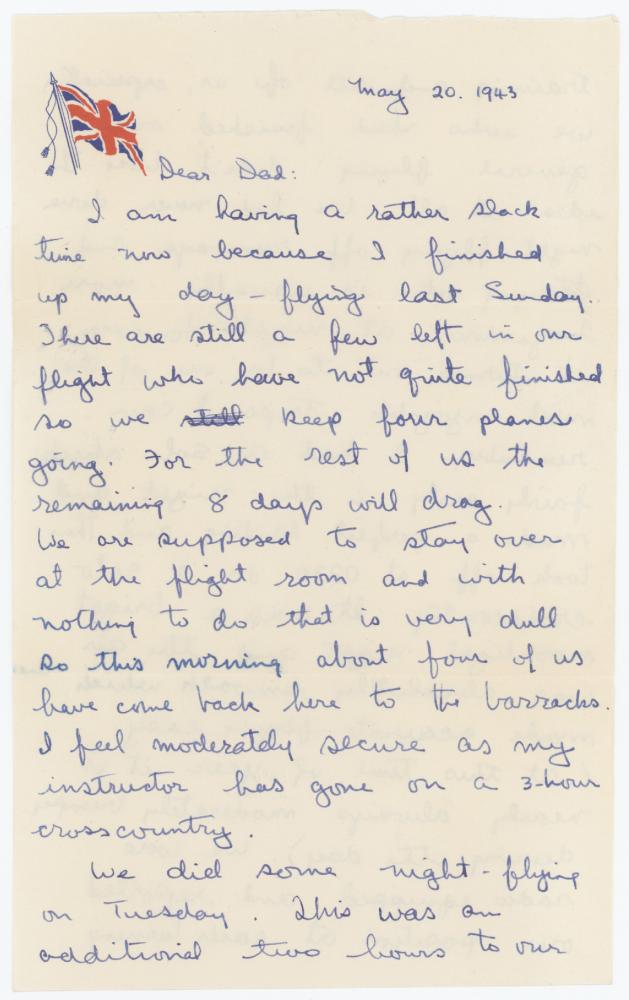 May 20. 1943
Dear Dad:
I am having a rather slack
time now because I finished
up my day-flying last Sunday.
There are still a few left in our
flight who have not quite finished
so we still keep four planes
going. For the rest of us the
remaining 8 days will drag.
We are supposed to stay over
at the flight room and with
nothing to do that is very dull
so this morning about four of us
have come back here to the barracks.
I feel moderately secure as my
instructor has gone on a 3-hour
crosscountry.
We did some night-flying
on Tuesday. This was an
additional two hours to our